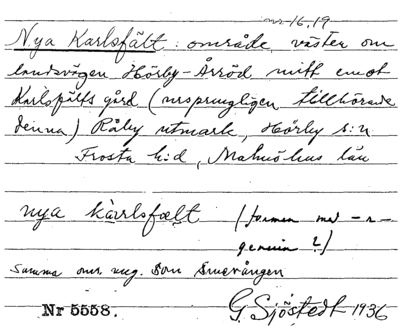 nr 16, 19
Nya Karlsfält: område, väster om
landsvägen Hörby-Årröd mitt emot
Karlsfälts gård (ursprungligen tillhörande
denna) Råby utmark, Hörby s:n
Frosta h:d, Malmöhus län
nya kàrlsfælt (formen med -n-
genuin?)
Samma omr. ung. som
Nr 5558. G. Sjöstedt 1936